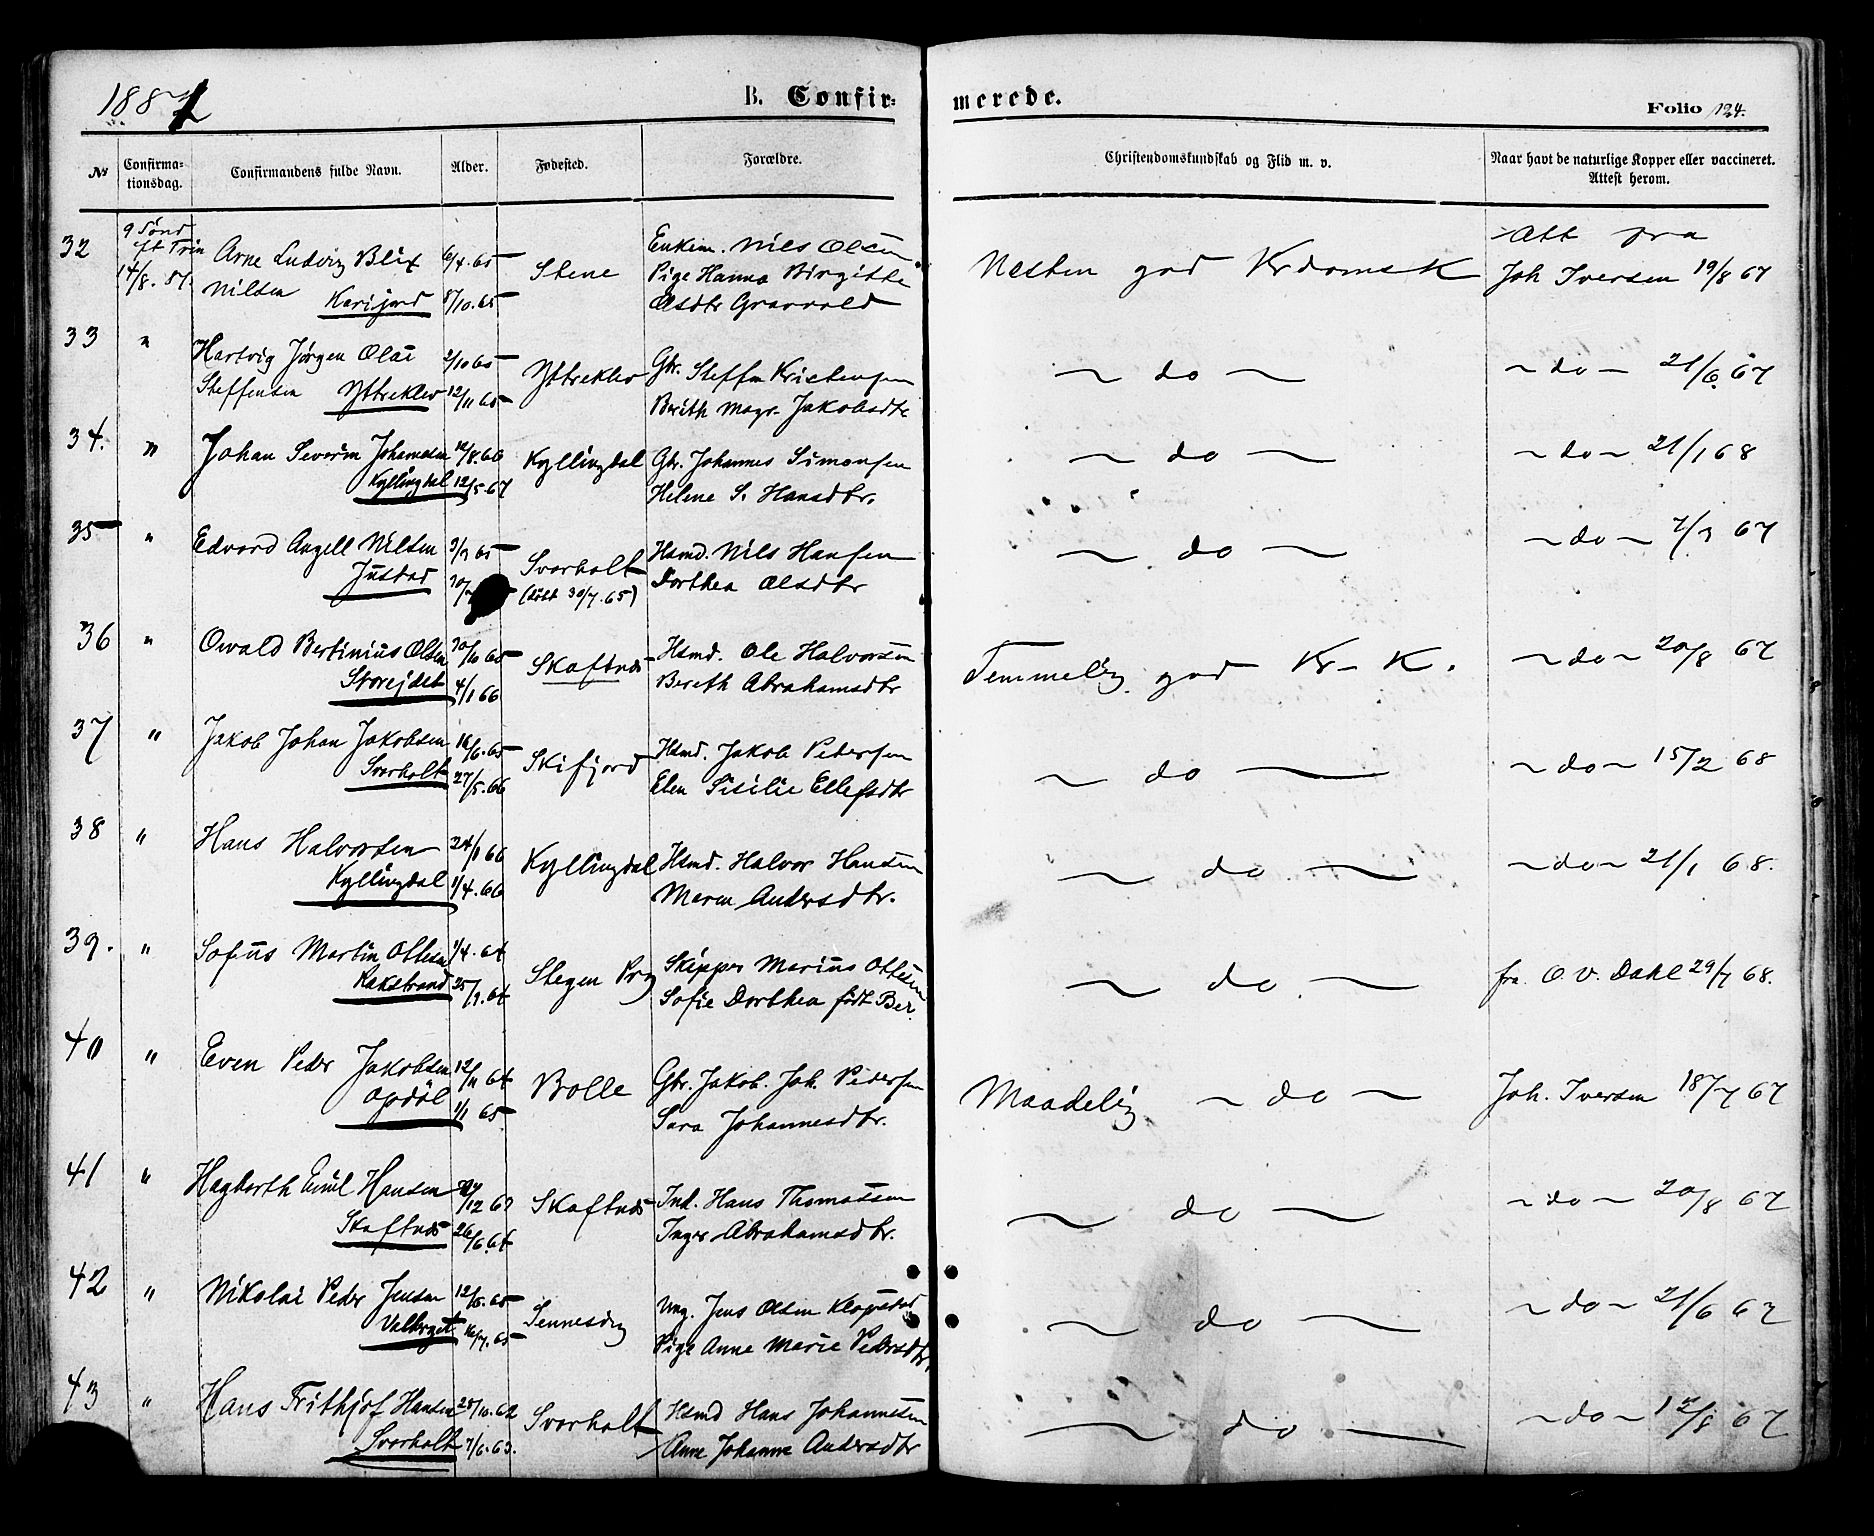 1881
B. Confirmerede.
Folio 124.
№ Confirmationsdag. Confirmandens fulde Navn. Alder. Fødested. Forældre. Christendomskundskab og Flid m. v. Naar havt de naturlige Kopper eller vaccineret. Attest herom.
32 9 Sønd eft Trin 14/8. 81. Arne Ludvig Blix 6/4.65 Stene Enkem. Nils Olsen Næsten god Krdomsk Att fra
Nilsen Karijord 8/10.65 Pige Hanna Birgitte Joh Iversen 19/8 67
Olsdtr Gravvold
33 " Hartvig Jørgen Olai 2/10 65 Yttreklev Gbr. Steffen Kristensen ~ do ~ ~ do ~ 21/6 67
Steffensen Yttreklev 12/11 65 Berith Magr. Jakobsdtr
34. " Johan Severin Johannesen 12/8.66 Kyllingdal Gbr. Johannes Simonsen ~ do ~ ~ do ~ 21/1 68
Kyllingdal 12/5.67 Helene S. Hansdtr.
35 " Edvard Angell Nilsen 3/3 65 Svarholt Hsmd. Nils Hansen ~ do ~ ~ do ~ 7/3 67
Justad 30/ (døbt 30/7.65) Dorthea Olsdtr
36 " Osvald Bertinius Olsen 30/10 65 Skaftnæs Hsmd. Ole Halvorsen Temmelig god Kr-K. ~ do ~ 20/8 67
Storejdet 4/1 66 Bereth Abrahamsdtr
37 " Jakob Johan Jakobsen 16/6.65 Skifjord Hsmd. Jakob Pedersen ~ do ~ ~ do ~ 15/2 68
Svarholt 27/5.66 Elen Sisilie Ellefsdtr
38 " Hans Halvorsen 24/1 66 Kyllingdal Hsmd. Halvor Hansen ~ do ~ ~ do ~ 21/1 68.
Kyllingdal 1/4.66 Maren Andersdtr.
39. " Sofus Martin Ottesen 1/4.64 Stegen Prg Skipper Marius Ottesen ~ do ~ fra O. V. Dahl 29/7 68.
Rakstrand 25/9.64 Sofie Dorthea født Ber
40 " Even Peder Jakobsen 12/11 64 Bolle Gbr. Jakob. Joh. Pedersen Maadelig ~ do ~ Joh. Iversen 18/7 67
Opdøl 1/1 65 Sara Johannesdtr.
41 " Hagbarth Emil Hansen /12 63 Skaftnæs Ind. Hans Thomassen ~ do ~ ~ do ~ 20/8 67
Skaftnæs 26/6.64 Inger Abrahamsdtr.
42 " Nikolai Peder Jensen 12/5.65 Sennesvig Ung. Jens Olsen Klopstad ~ do ~ ~ do ~ 21/6 67
Valberget 16/7.65 Pige Anne Marie Pedersdtr.
43 " Hans Frithjof Hansen 28/10.62 Svarholt Hsmd Hans Johannesen ~ do ~ ~ do ~ 17/8 67
Svarholt 7/6.63. Anne Johanna Andersdtr